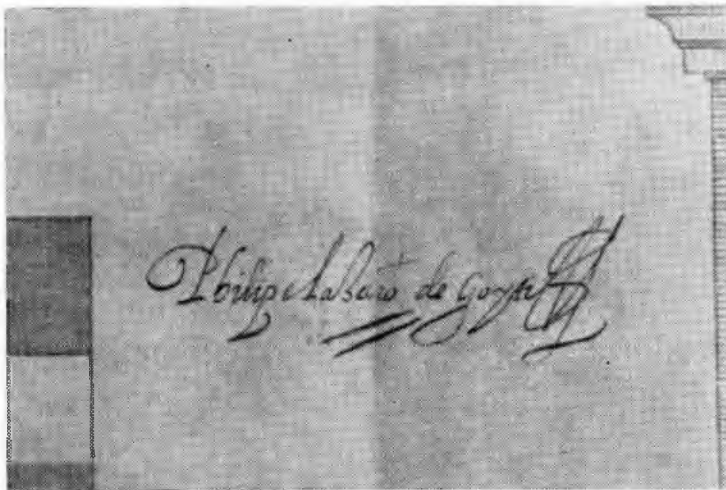 Phılipe lasaro de goyti